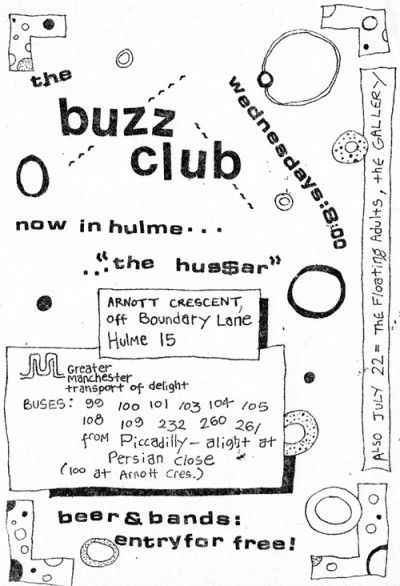 the
buzz
club
wednesdays:8:00
now in hulme...
..."the hussar"
ARNOTT CRESCENT,
off Boundary Lane
Hulme 15
Greater
Manchester
transport of delight
BUSES: 99 100 101 103 104 105
108 109 232 260 261
from Piccadilly - alight at
Persian close
(100 at Arnott Cres.)
beer & bands:
entry for free!
ALSO JULY 22 = THE Floating Adults, the GALLERY